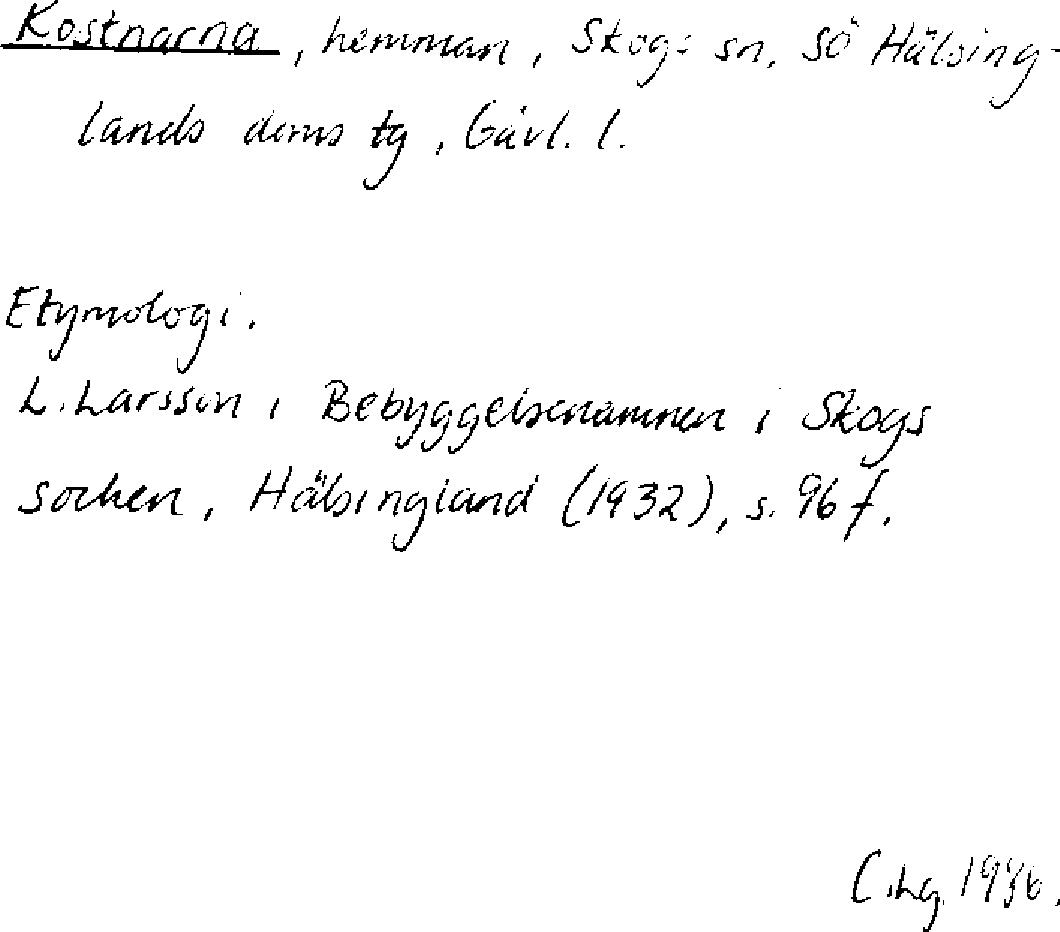 Kostnarna, hemman, Skogs sn, SÖ Hälsing-
lands doms tg, Gävl. l.
Etymologi.
L. Larsson i Bebyggelsenamnen i Skogs
socken, Hälsingland (1932), s. 96 f.
C. Lg.